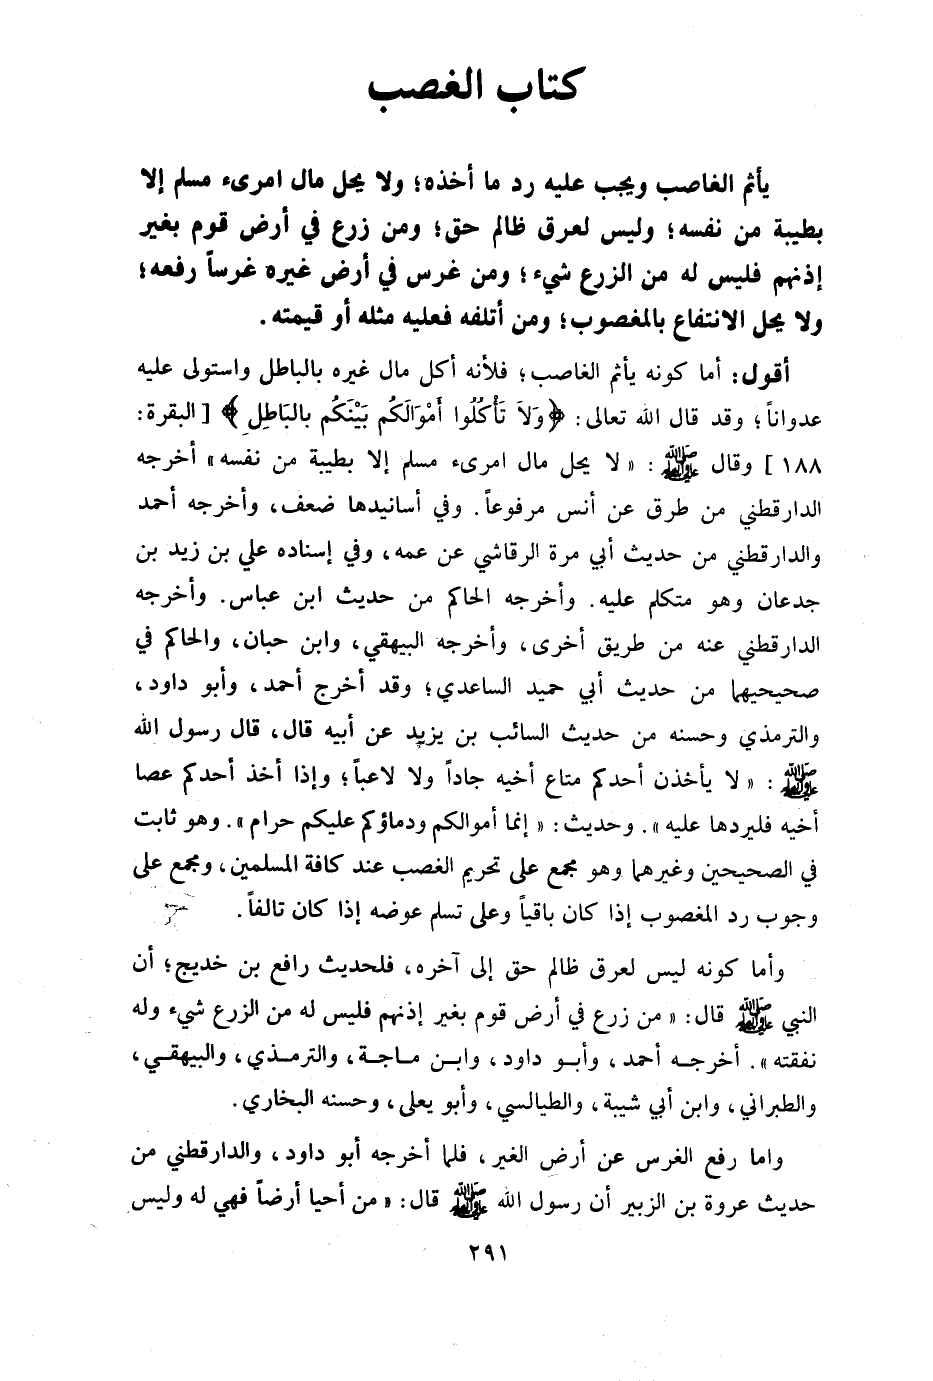 كتاب الغصب
يأثم الغاصب ويجب عليه رد ما أخذه؛ ولا يحل مال امرىء مسلم إلا
بطيبة من نفسه؛ وليس لعرق ظالم حق؛ ومن زرع في أرض قوم بغير
إذنهم فليس له من الزرع شيء؛ ومن غرس في أرض غيره غرساً رفعه؛
ولا يحل الانتفاع بالمغصوب؛ ومن أتلفه فعليه مثله أو قيمته.
أقول: أما كونه يأثم الغاصب؛ فلأنه أكل مال غيره بالباطل واستولى عليه
عدواناً؛ وقد قال الله تعالى: ﴿وَلاَ تَأْكُلُوا أَمْوَالَكُم بَيْنَكُم بالبَاطِلِ﴾ [البقرة:
١٨٨] وقال ﷺ: «لا يحل مال امرىء مسلم إلا بطيبة من نفسه» أخرجه
الدارقطني من طرق عن أنس مرفوعاً. وفي أسانيدها ضعف، وأخرجه أحمد
والدارقطني من حديث أبي مرة الرقاشي عن عمه، وفي إسناده علي بن زيد بن
جدعان وهو متكلم عليه. وأخرجه الحاكم من حديث ابن عباس. وأخرجه
الدارقطني عنه من طريق أخرى، وأخرجه البيهقي، وابن حبان، والحاكم في
صحيحيهما من حديث أبي حميد الساعدي؛ وقد أخرج أحمد، وأبو داود،
والترمذي وحسنه من حديث السائب بن يزيد عن أبيه قال، قال رسول الله
ﷺ: «لا يأخذن أحدكم متاع أخيه جاداً ولا لاعباً؛ وإذا أخذ أحدكم عصا
أخيه فليردها عليه». وحديث: «إنما أموالكم ودماؤكم عليكم حرام». وهو ثابت
في الصحيحين وغيرهما وهو مجمع على تحريم الغصب عند كافة المسلمين، ومجمع على
وجوب رد المغصوب إذا كان باقياً وعلى تسلم عوضه إذا كان تالفاً.
وأما كونه ليس لعرق ظالم حق إلى آخره، فلحديث رافع بن خديج؛ أن
النبي ﷺ قال: «من زرع في أرض قوم بغير إذنهم فليس له من الزرع شيء وله
نفقته». أخرجه أحمد، وأبو داود، وابن ماجة، والترمذي، والبيهقي،
والطبراني، وابن أبي شيبة، والطيالسي، وأبو يعلى، وحسنه البخاري.
واما رفع الغرس عن أرض الغير، فلما أخرجه أبو داود، والدارقطني من
حديث عروة بن الزبير أن رسول الله ﷺ قال: «من أحيا أرضاً فهي له وليس
٢٩١